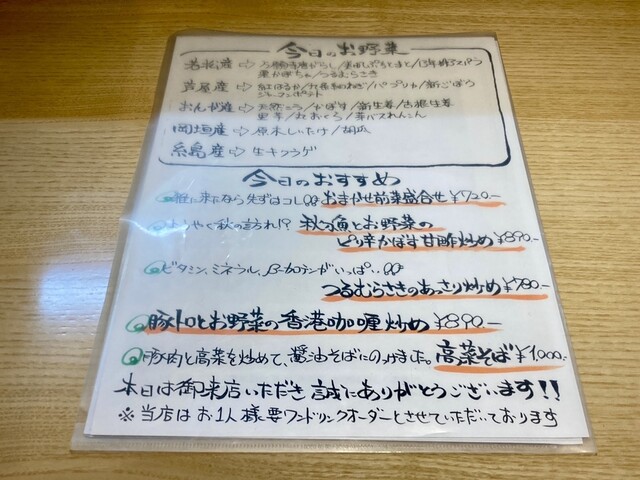 今日のお野菜
若松産⇨万願寺唐がらし/
栗かぼちゃ/つるむらさき
芦屋産⇨紅はるか/パプリカ/新ごぼう
おんが産⇨天然きのこ/かぼす/新生姜/古根生姜
里芋/れんこん
岡垣産⇨原木しいたけ/胡瓜
糸島産⇨生キクラゲ
今日のおすすめ
に来たなら先ずはコレ!! おまかせ前菜盛合せ ¥720-
ようやく秋の訪れ!? 秋の魚とお野菜の
ピリ辛かぼす甘酢炒め ¥890-
ビタミン、ミネラル、β-カロテンがいっぱい!!
つるむらさきのあっさり炒め ¥780-
豚トロとお野菜の香港咖喱炒め ¥890-
豚肉と高菜を炒めて、醤油そばにのっけました。高菜そば ¥1,000-
本日は御来店いただき誠にありがとうございます!!
※当店はお1人様要ワンドリンクオーダーとさせていただいております